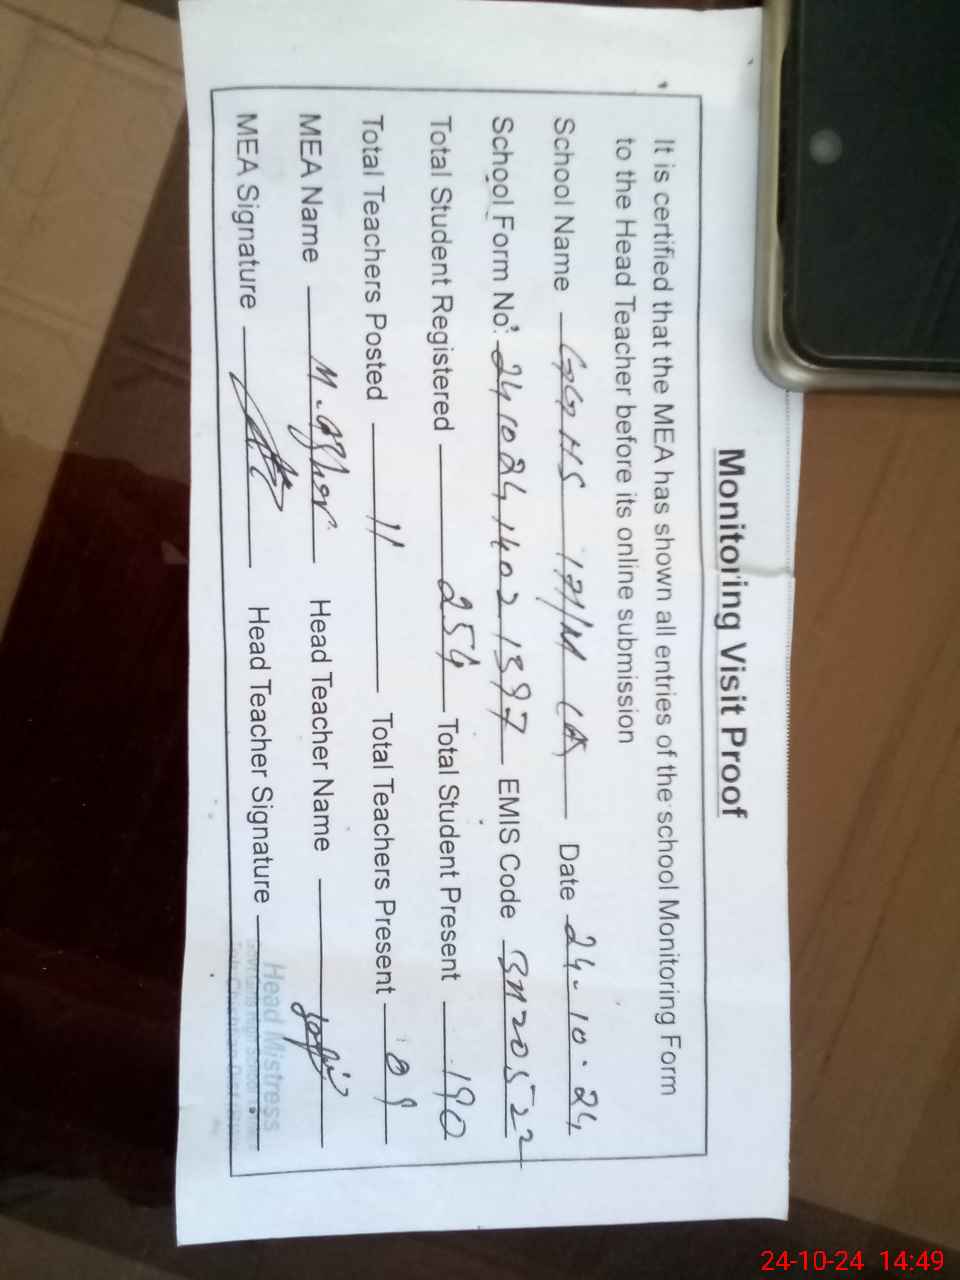 Monitoring Visit Proof
It is certified that the MEA has shown all entries of the school Monitoring Form
to the Head Teacher before its online submission
School Name GGHS 171/M Date 24-10-24
School Form No: 2410241402 1397 EMIS Code 31220522
Total Student Registered 254 Total Student Present 190
Total Teachers Posted 11 Total Teachers Present 09
MEA Name M. Head Teacher Name
MEA Signature Head Teacher Signature
Head Mistress
24-10-24 14:49